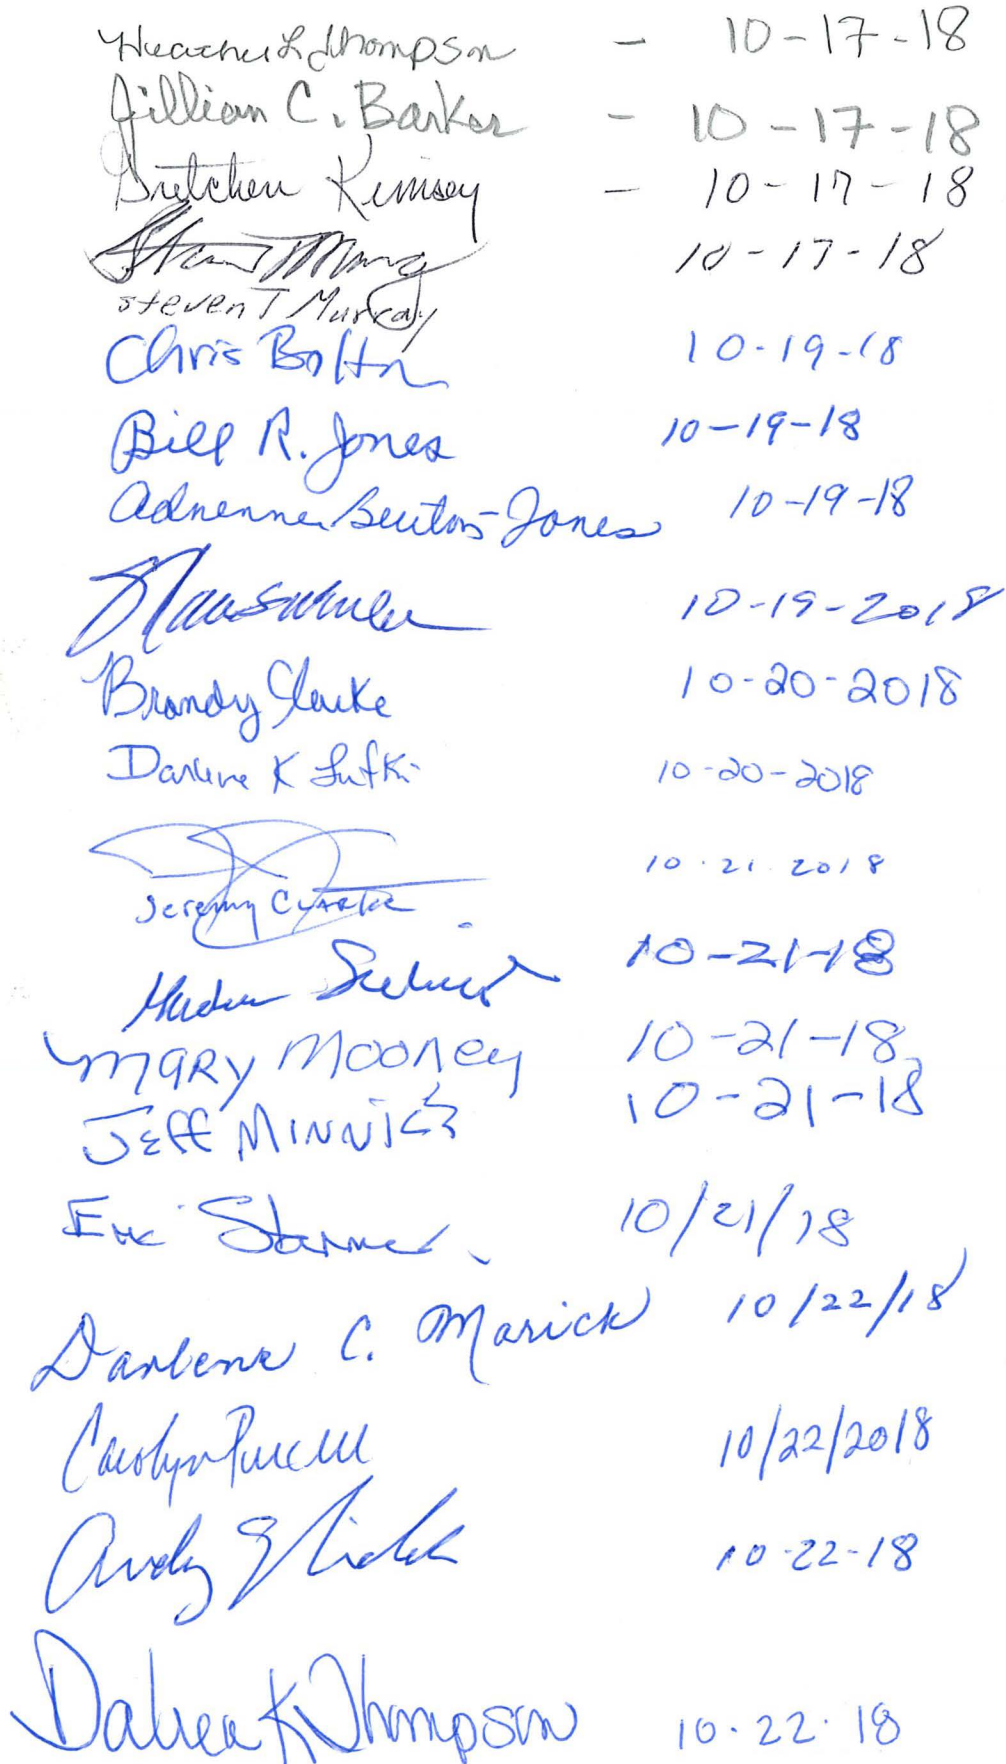 Heather L Thompson - 10-17-18
Jillian C. Barker - 10-17-18
Gretchen Kimsey - 10-17-18
10-17-18
Steven T Murray
Chris Bolton 10-19-18
Bill R. Jones 10-19-18
Adrienne Benton-Jones 10-19-18
10-19-2018
Brandy Clarke 10-20-2018
Darlene K Lufki 10-20-2018
10.21.2018
Jeremy Clarke
10-21-18
Mary Mooney 10-21-18
Jeff Minnick 10-21-18
Eric 10/21/18
Darlene C. Marick 10/22/18
Carolyn Purcell 10/22/2018
Andy 10-22-18
Thompson 10.22.18